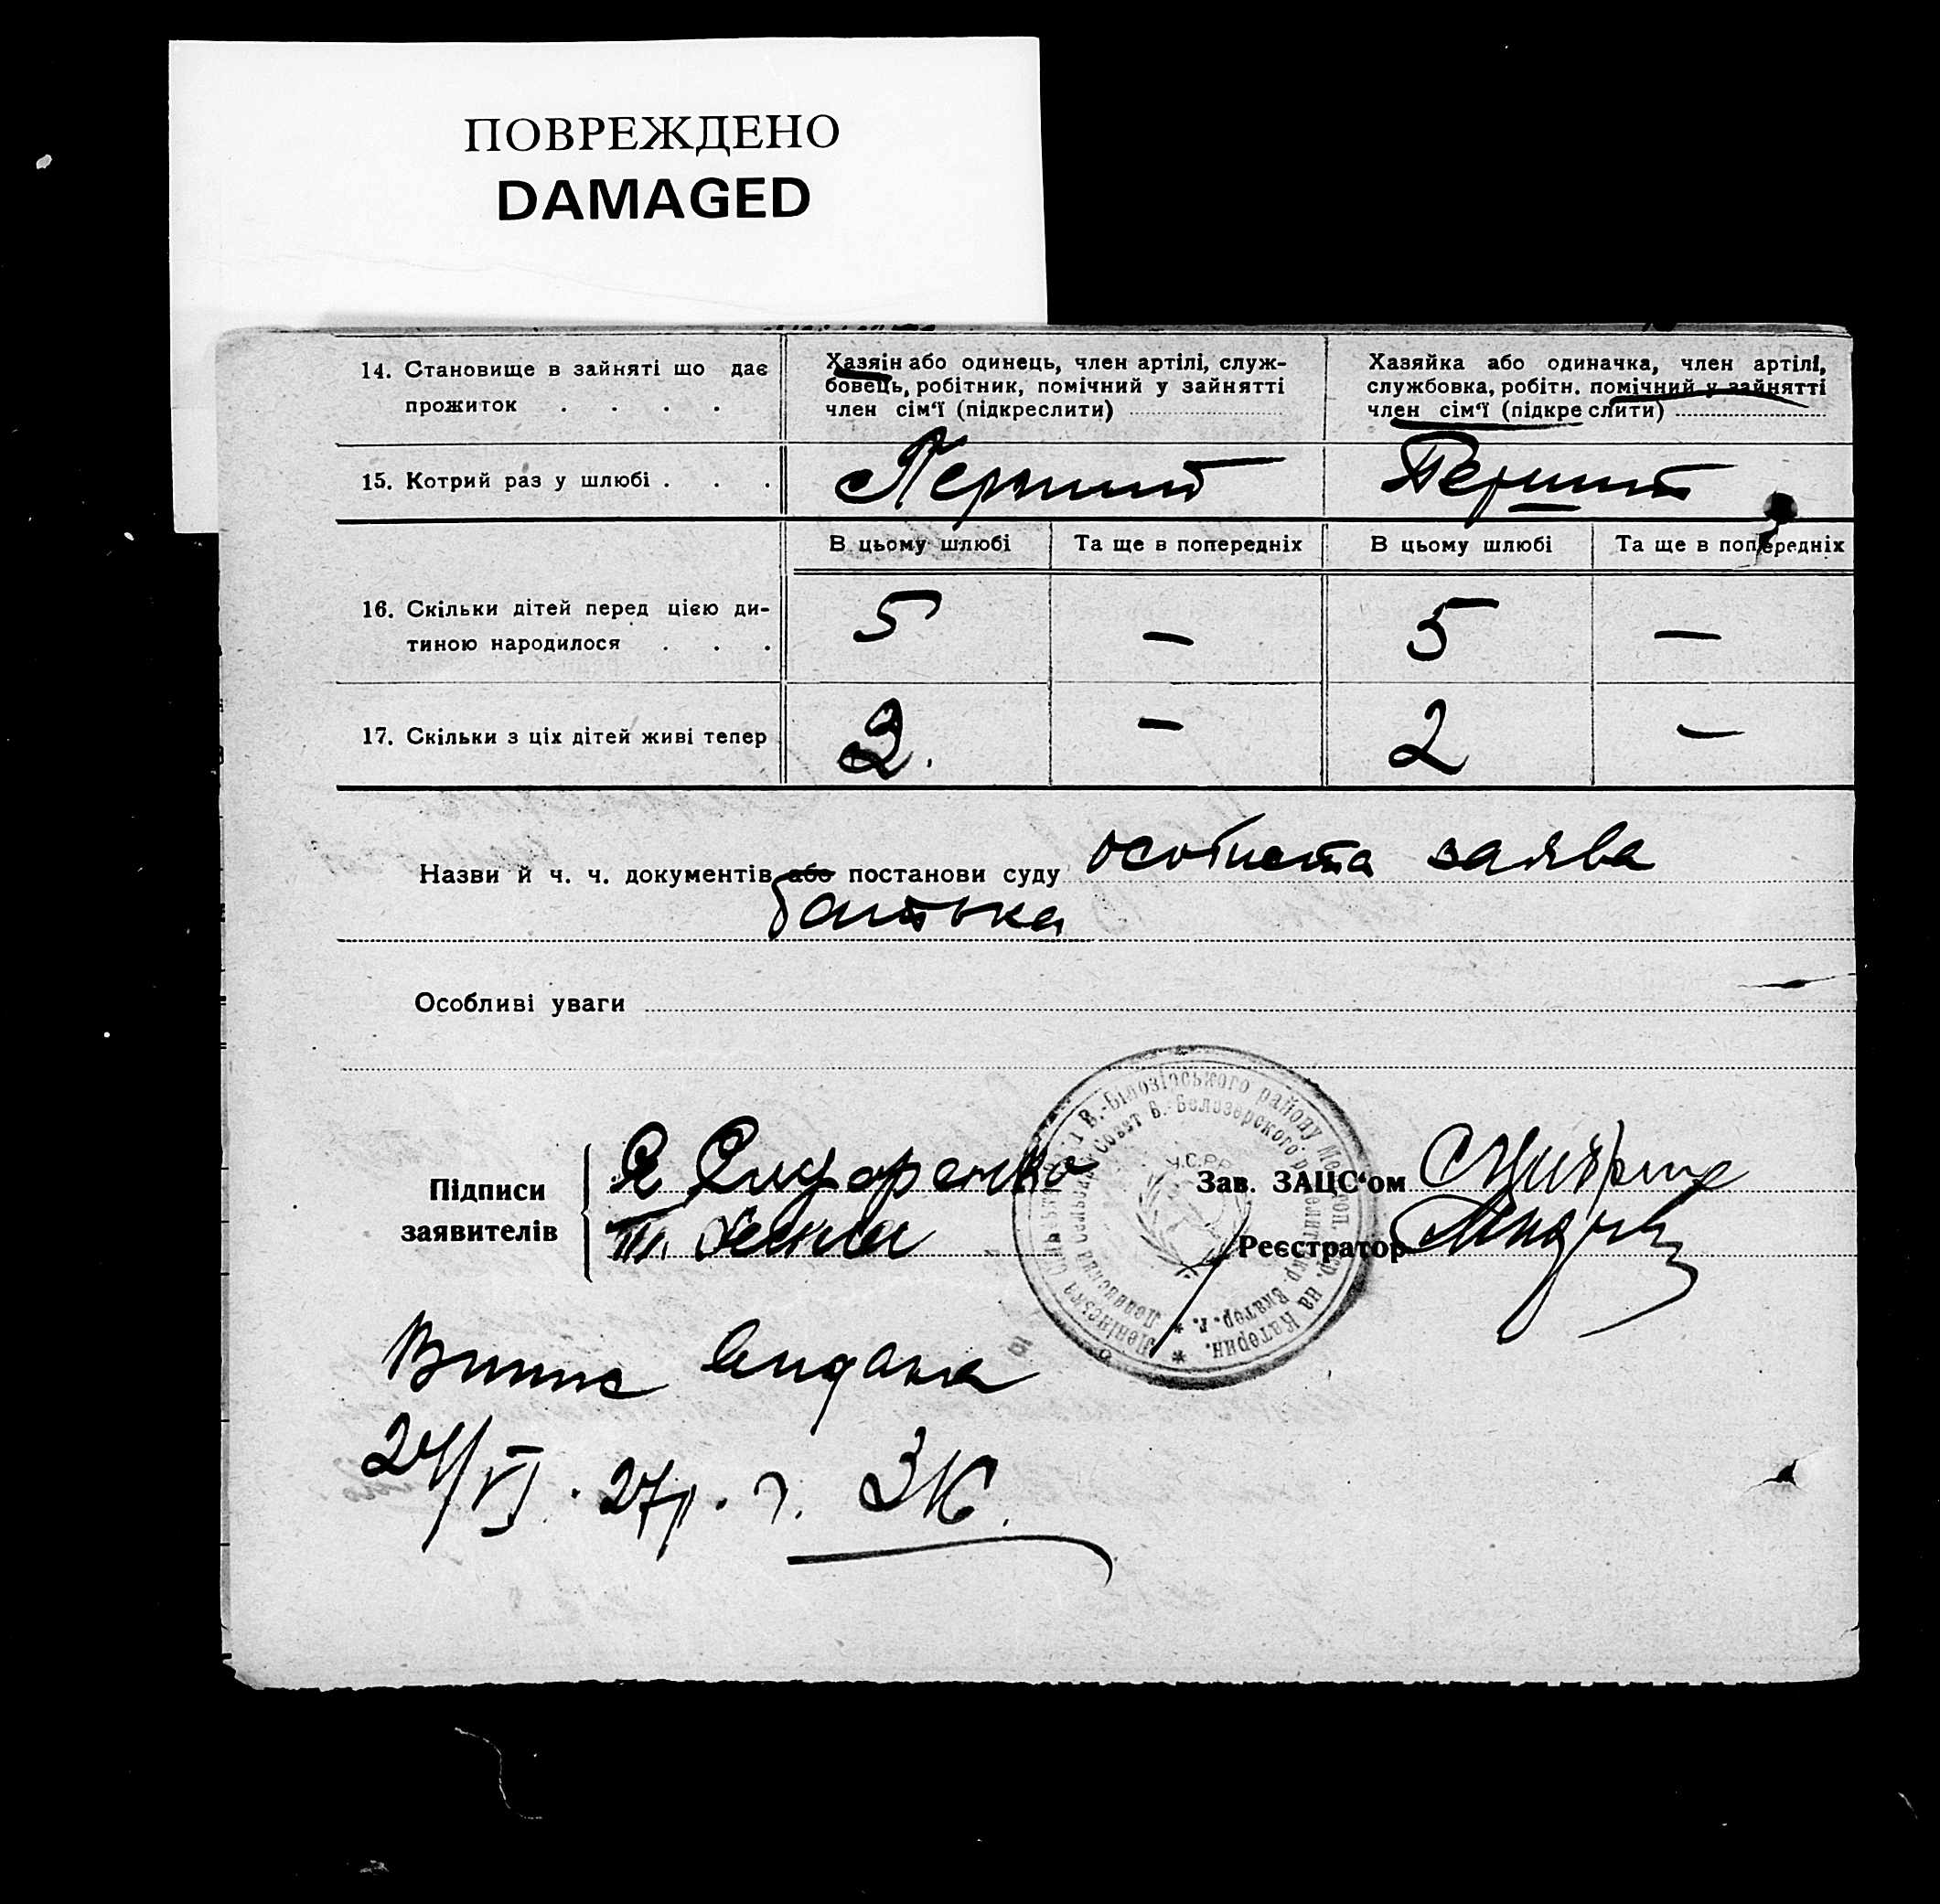 ПОВРЕЖДЕНО
DAMAGED
14. Становище в зайняті що дає прожиток . . . .
Хазяін або одинець, член артілі, служ-
бовець, робітник, помічний у зайнятті
член сім'ї (підкреслити)
Хазяйка або одиначка, член артілі,
службовка, робітн. помічний у зайнятті
член сім'ї (підкреслити)
15. Котрий раз у шлюбі . . .
Перший
Перший
В цьому шлюбі
Та ще в попередніх
В цьому шлюбі
Та ще в попередніх
16. Скільки дітей перед цією ди-
тиною народилося . . .
5
—
5
—
17. Скільки з ціх дітей живі тепер
2.
—
2
—
Назви й ч. ч. документів або постанови суду особиста заява
батька
Особливі уваги
Підписи
заявителів
Зав. ЗАЦС'ом
Реєстратор
В.-Білозірського району
Совет Б.-Белозерского
У.С.Р.Р.
24/VI. 27р.